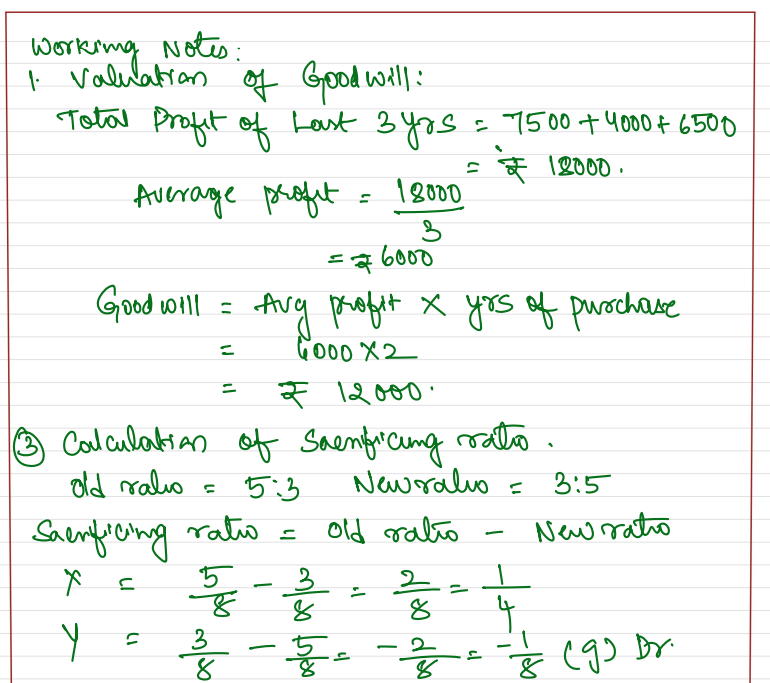 Working Notes:
1. Valuation of Goodwill:
Total Profit of Last 3 yrs = 7500 + 4000 + 6500
= ₹ 18000.
Average profit = 18000/3
= ₹ 6000
Goodwill = Avg profit × yrs of purchase
= 6000 × 2
= ₹ 12000.
③ Calculation of Sacrificing ratio.
Old ratio = 5:3 New ratio = 3:5
Sacrificing ratio = Old ratio - New ratio
X = 5/8 - 3/8 = 2/8 = 1/4
Y = 3/8 - 5/8 = -2/8 = -1/8 (g) Dr.